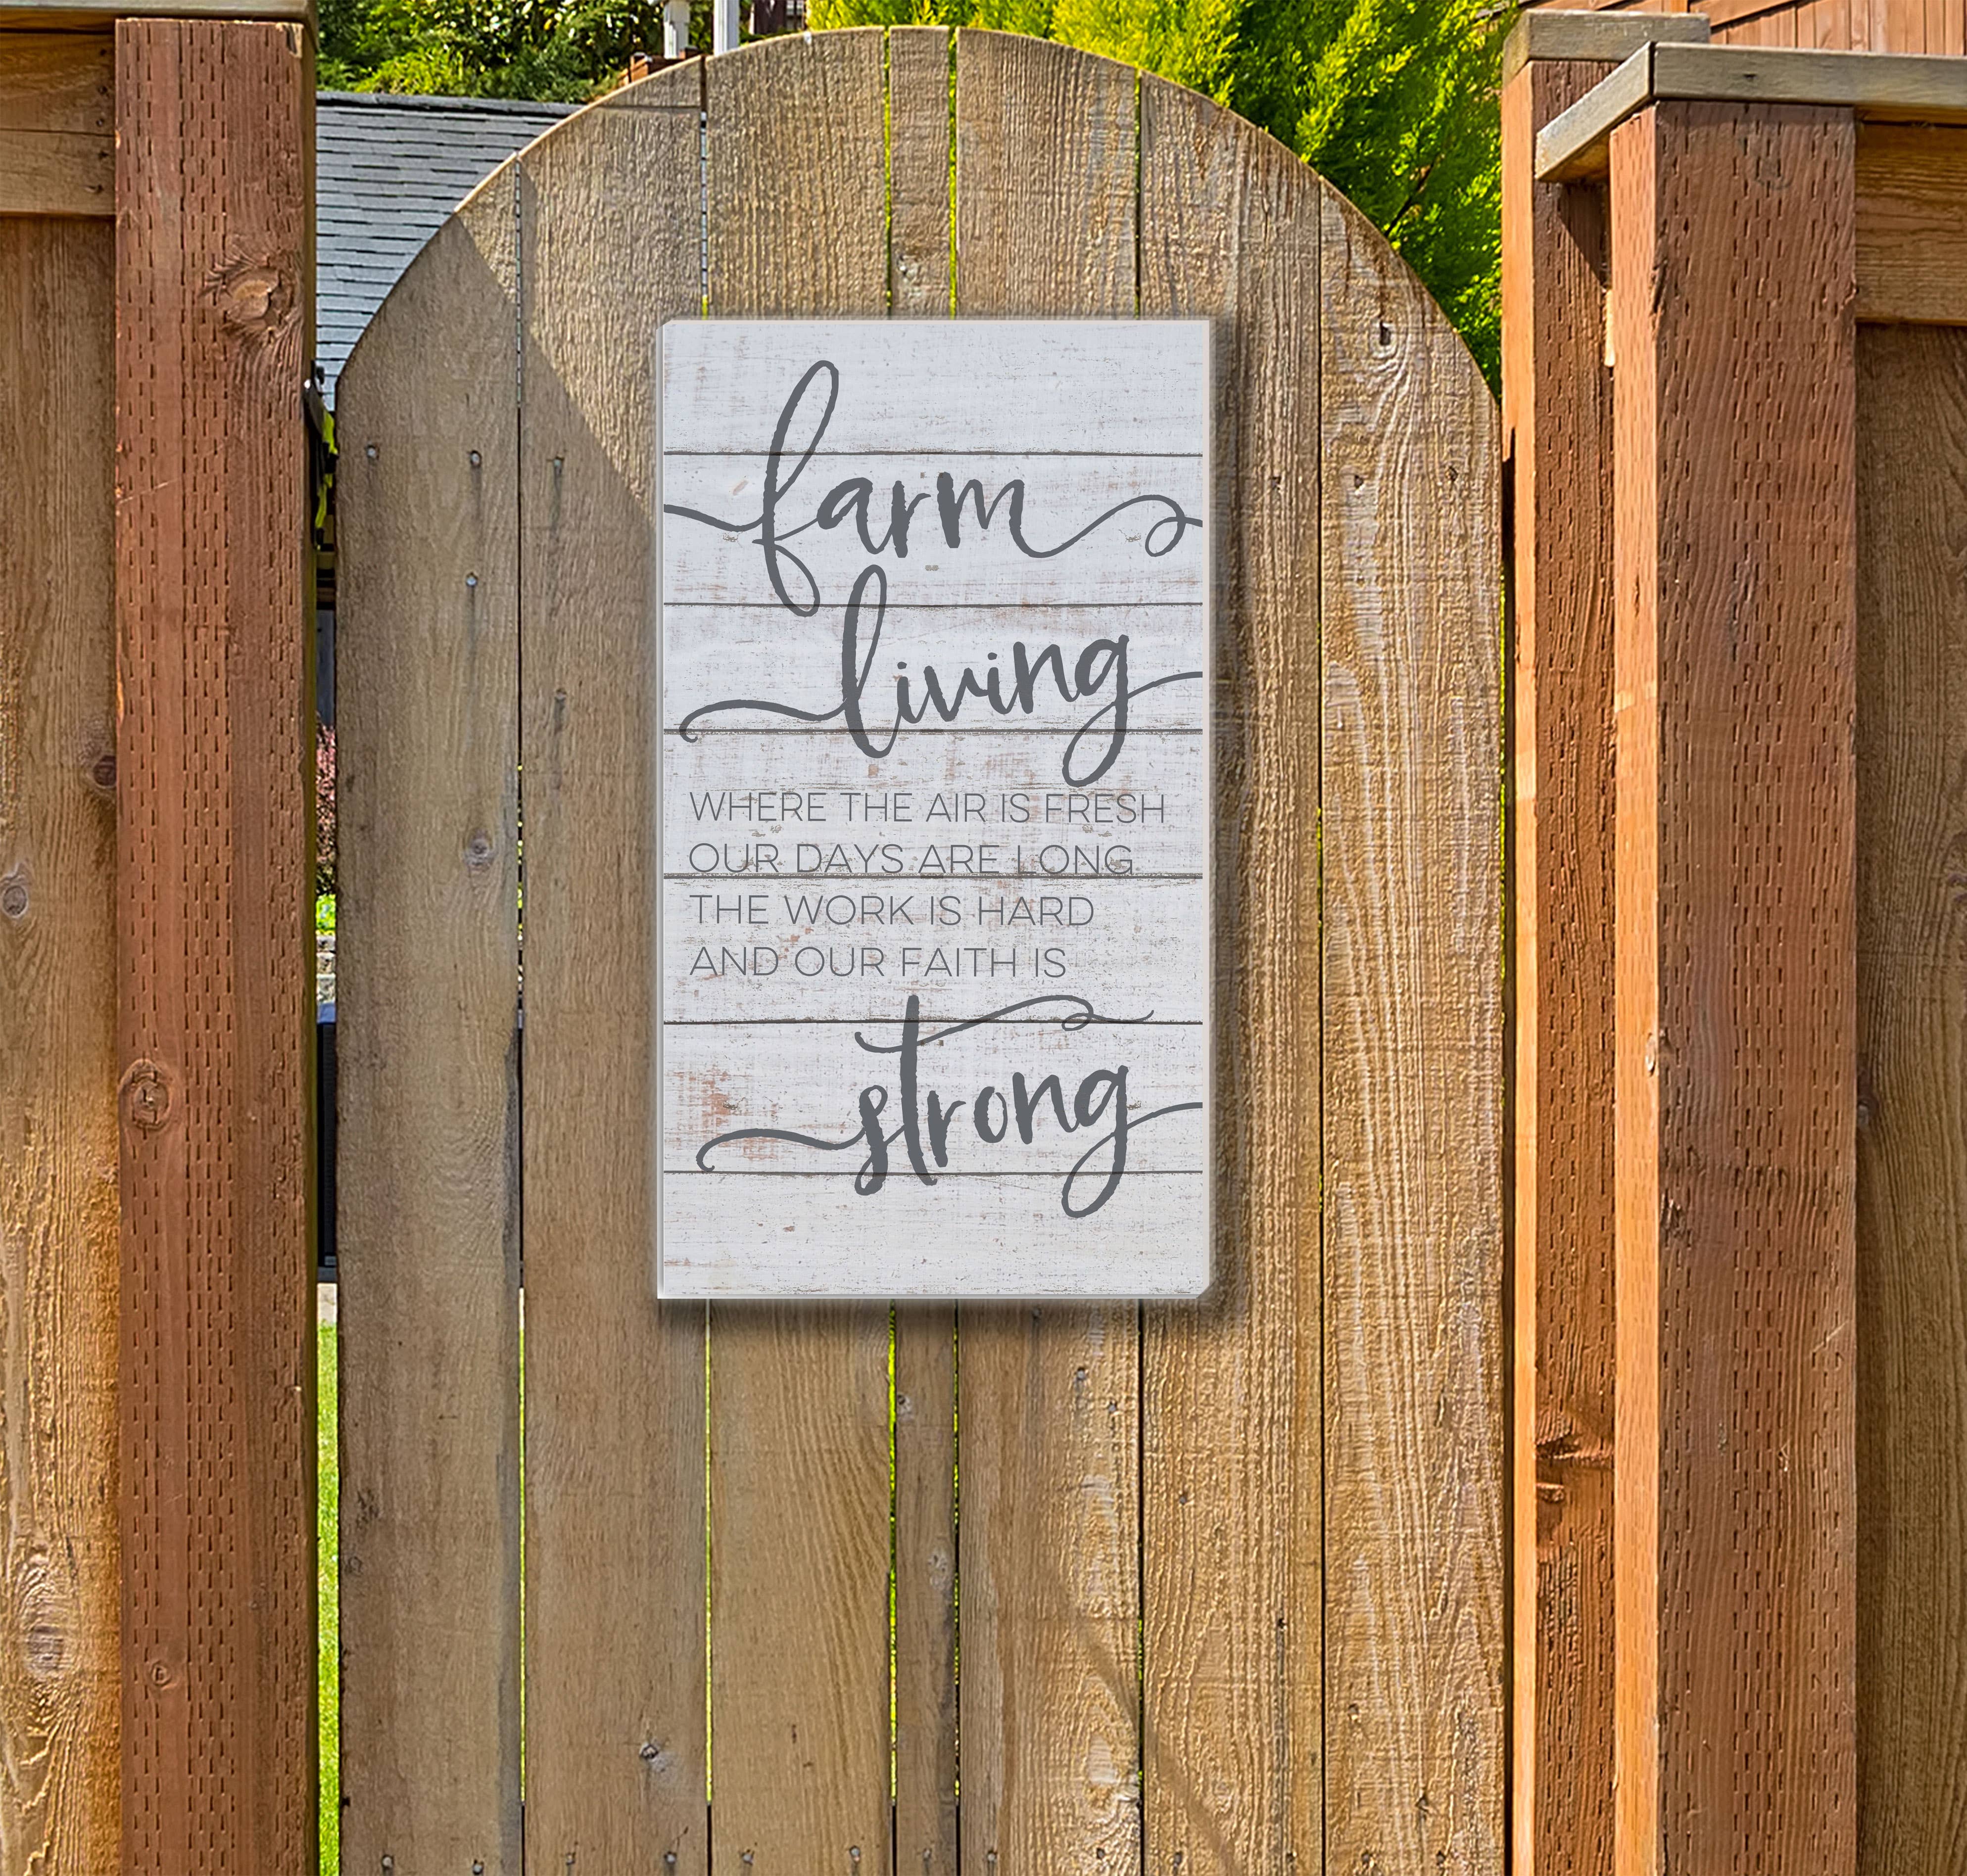 farm
living
WHERE THE AIR IS FRESH
OUR DAYS ARE LONG
THE WORK IS HARD
AND OUR FAITH IS
strong